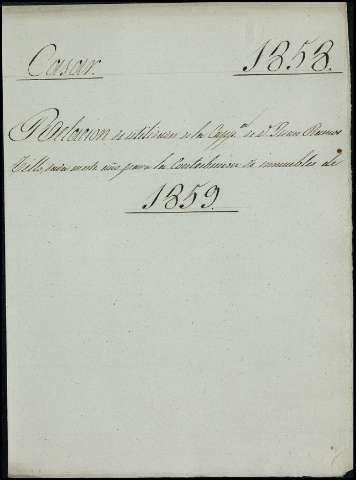 Casar. 1858.
Relacion de utilidades de la Capp.ª de D.n Juan Ramos
Tello, en este año para la Contribucion de inmuebles de
1859.